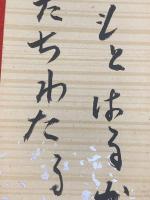 もとはるか
たちわたる